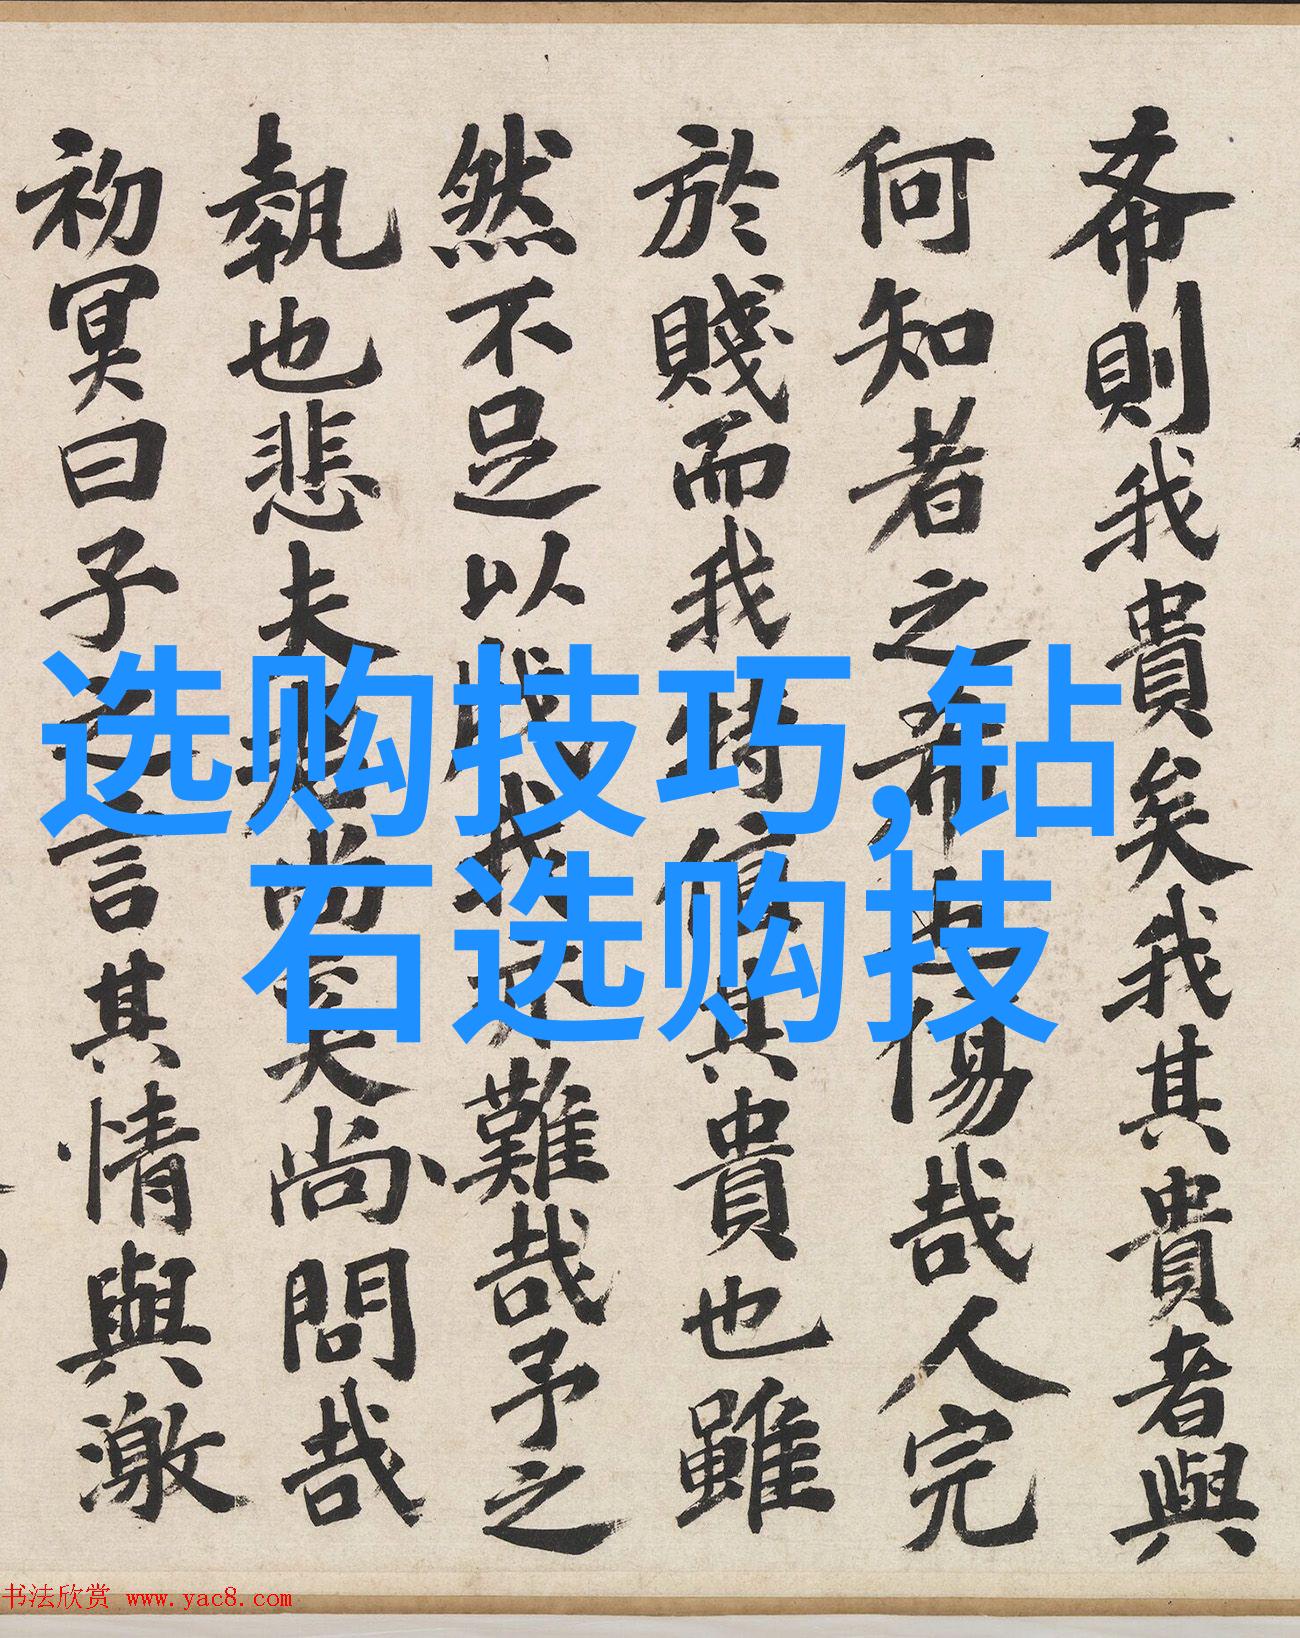 希則我貴矣我其貴者與
何知者之希也傷哉人完
於賤而我信其貴也雖
然不足以我難哉予之
執也悲夫尚矣尚問哉
初冥曰子之言其情與激
选购技巧,钻
石选购技
书法欣赏 www.yac8.com